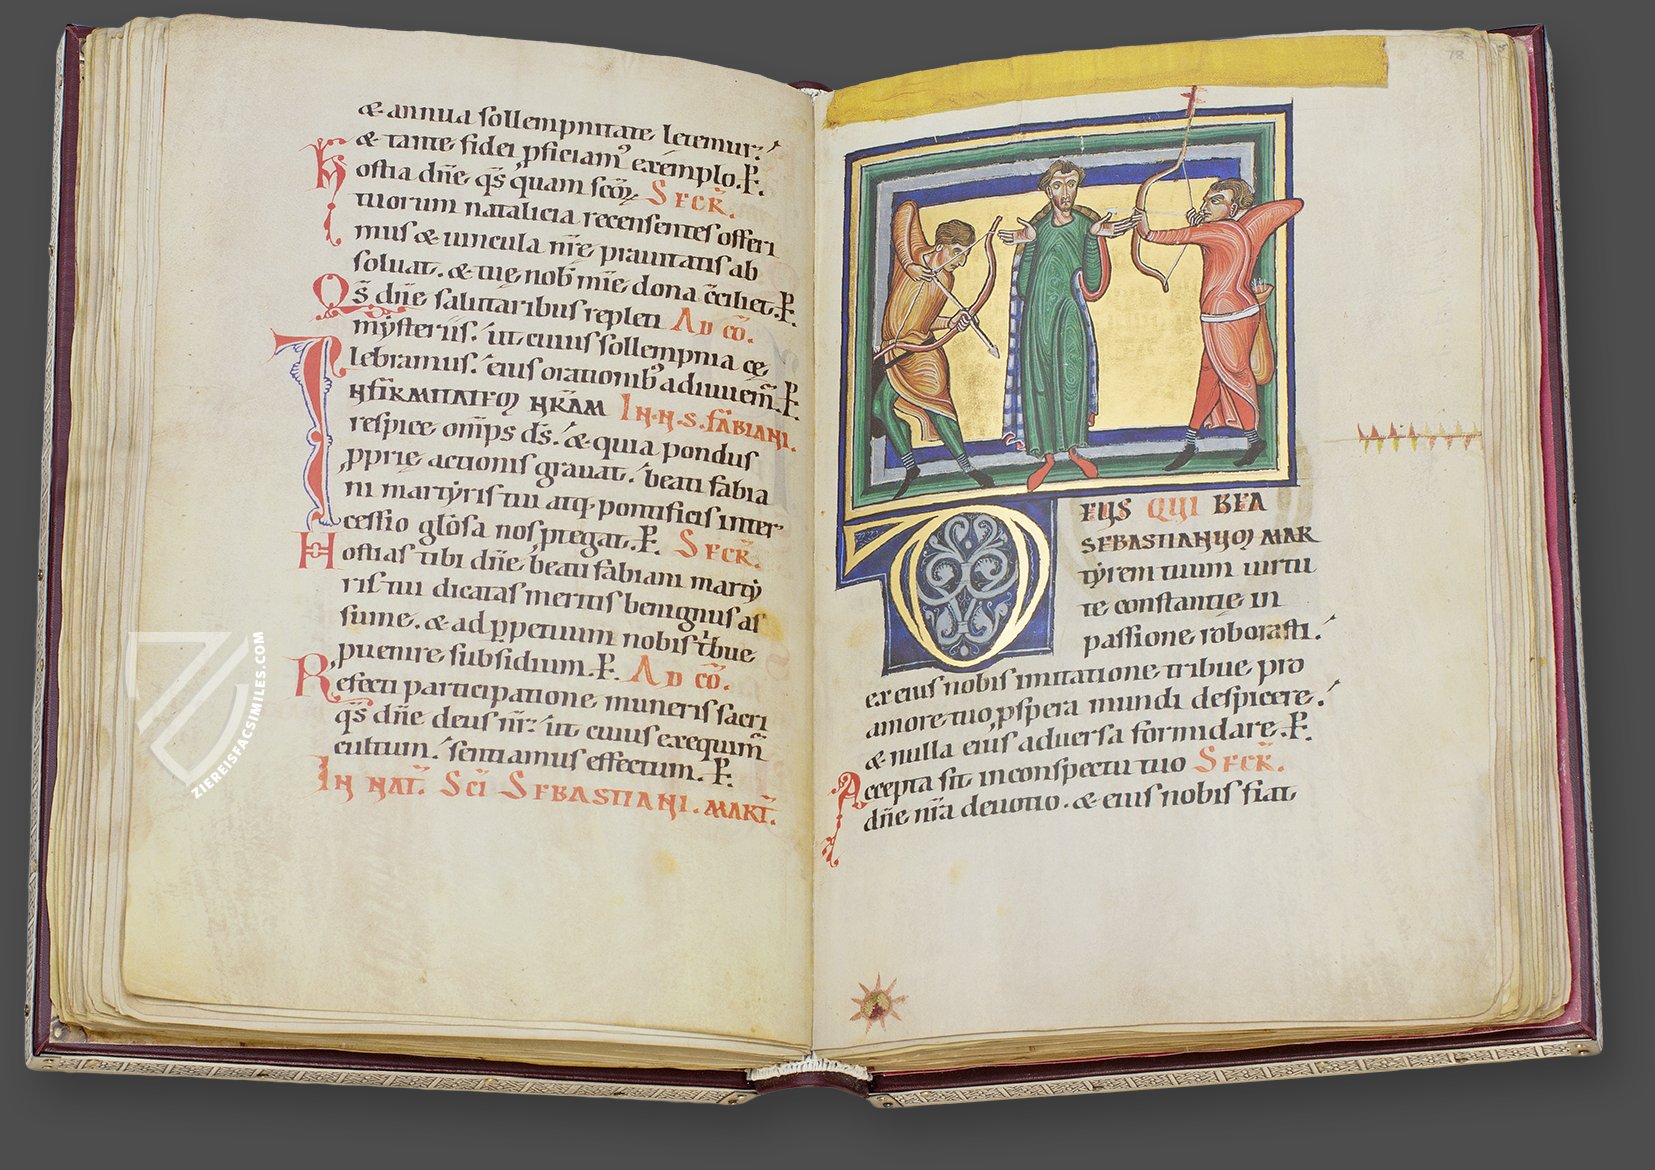 & annua sollempnitate letemur:
& tante fidei ꝓficiam᷒ exemplo. P̶.
Hostia dñe q̃s quam sc̃oꝝ SECR̃.
tuorum natalicia recensentes offeri
mus & uincula nr̃e prauitatis ab
soluat. & tue nob̃ mĩe dona c̃ciliet. P̶.
Qs̃ dñe salutaribus repleti AD CÕ.
mẏsteriis. ut cuius sollempnia ce
lebramus. eius orationib᷒ adiuuem̃. P̶.
INFIRMITATEM NR̃AM IN.N.S.FABIANI.
respice om̃ps ds̃. & quia pondus
ꝓprie actionis grauat. beati fabia
ni martẏris tui atq; pontificis inter
cessio gl̃osa nos ꝓtegat. P̶. SECR̃.
Hostias tibi dñe beati fabiani martẏ
ris tui dicatas meritis benignus as
sume. & ad ꝑpetuum nobis t̃bue
ꝓuenire subsidium. P̶. AD CÕ.
Refecti participatione muneris sacri
q̃s dñe deus nr̃: ut cuius exequim̃
cultum. sentiamus effectum. P̶.
IN NAT̃. SC̃I SEBASTIANI. MART̃.
18
DEUS QUI BEA
SEBASTIANUM MAR
tẏrem tuum uirtu
te constantie in
passione roborasti.
ex eius nobis imitatione tribue pro
amore tuo ꝓspera mundi despicere.
& nulla eius aduersa formidare. P̶.
Accepta sit in conspectu tuo SECR̃.
dñe nr̃a deuotio. & eius nobis fiat
ZIEREISFACSIMILES.COM